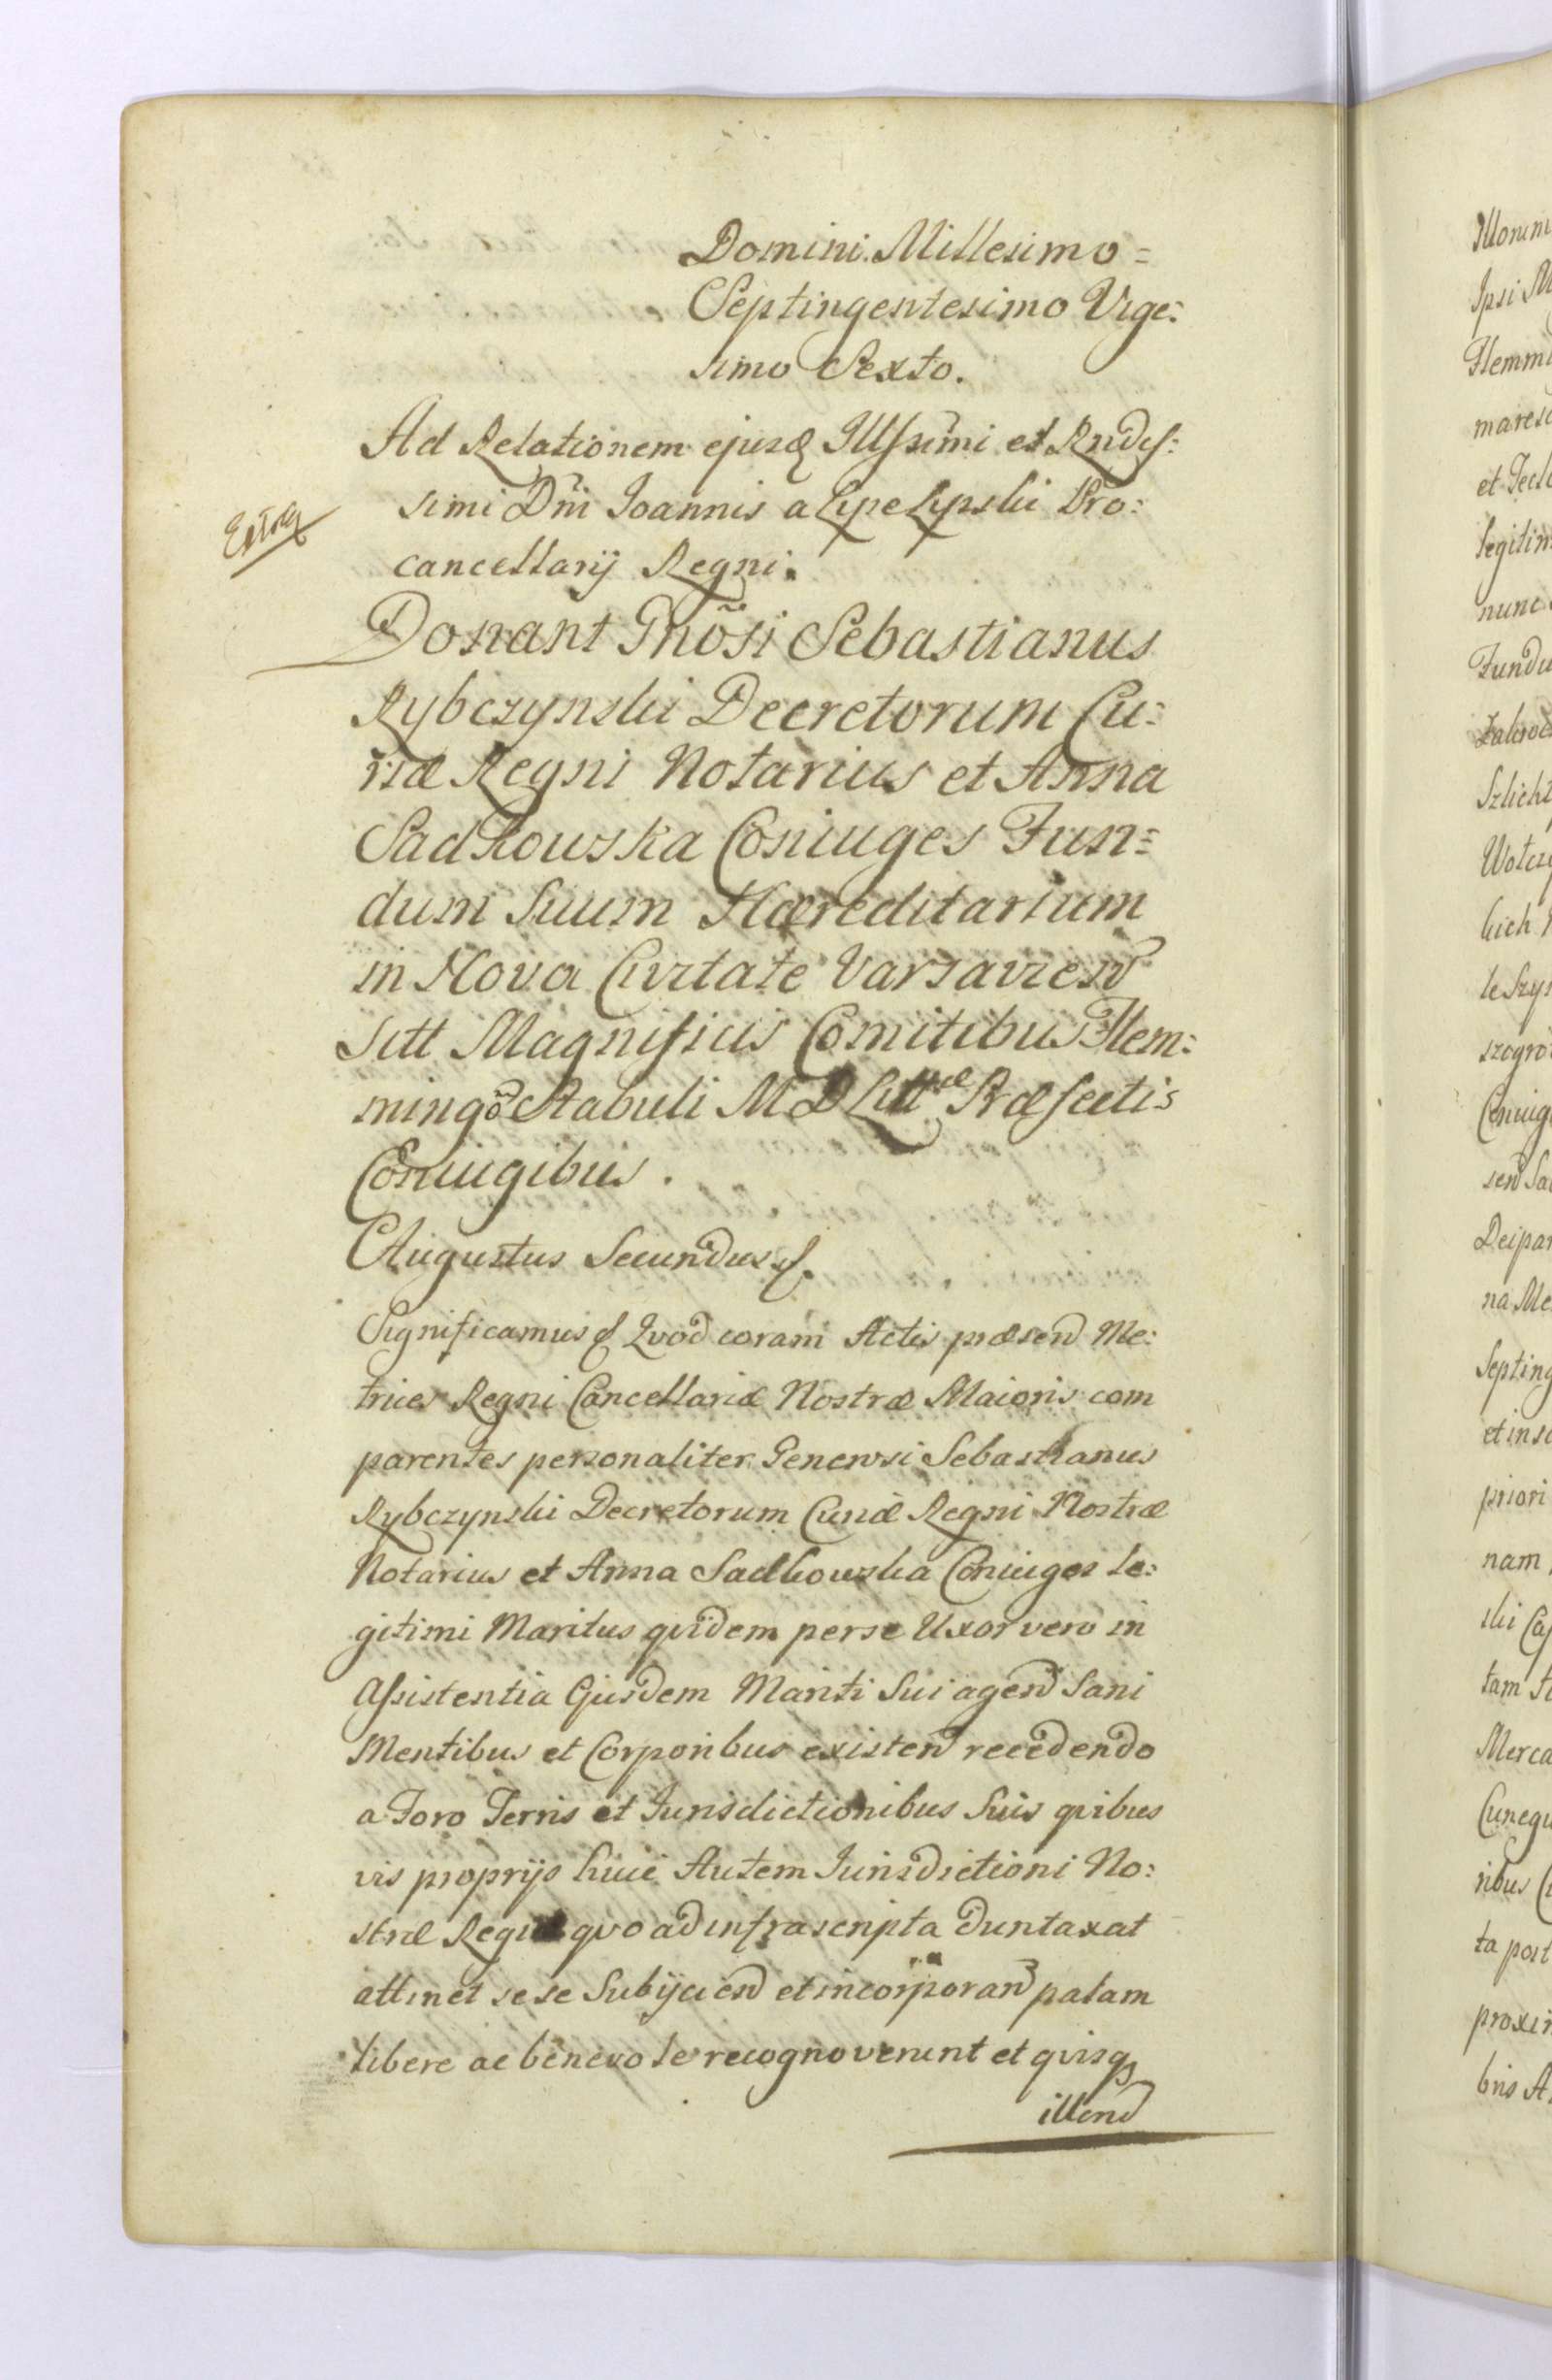 Domini Millesimo=
Septingentesimo Vige:
simo Sexto.
Ad Relationem ejusq Illssimi et Rndis:
simi Dni Joannis a Lipe Lipski Pro:
cancellarij Regni.
Extra
Donant Gnosi Sebastianus
Rybczynski Decretorum Cu:
riæ Regni Notarius et Anna
Sadkowska Coniuges Fun=
dum Suum Hæreditarium
in Nova Civitate Varsavien
Sitt Magnificis Comitibus Flem:
ming Stabuli M D Littæ Præfectis
Coniugibus.
Augustus Secundus
Significamus Quod coram Actis præsen Me:
trices Regni Cancellariæ Nostræ Maioris com
parentes personaliter Generosi Sebastianus
Rybczynski Decretorum Curiæ Regni Nostræ
Notarius et Anna Sadkowska Coniuges le:
gitimi Maritus quidem per se Uxor vero in
Assistentia Ejusdem Mariti Sui agen Sani
Mentibus et Corporibus existen recedendo
a Foro Terris et Jurisdictionibus Suis quibus
vis proprijs huic Autem Jurisdictioni No:
stræ Regiæ quo ad infrascripta duntaxat
attinet sese Subijcien et incorporan palam
libere ac benevole recognoverunt et quisq
illen
Illorum
Ipsi
Flemm
maresc
et
legitim
nunc
Fundu
Szlicht
Coniug
sen
Deipar
na
Septing
et
priori
nam
tam
Merca
Cunegu
ribus
ta post
proxi
bris A